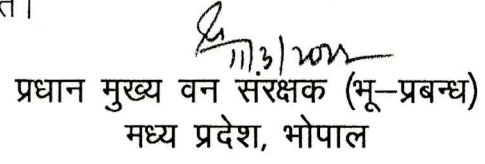 त।
11.3/2022
प्रधान मुख्य वन संरक्षक (भू–प्रबन्ध)
मध्य प्रदेश, भोपाल